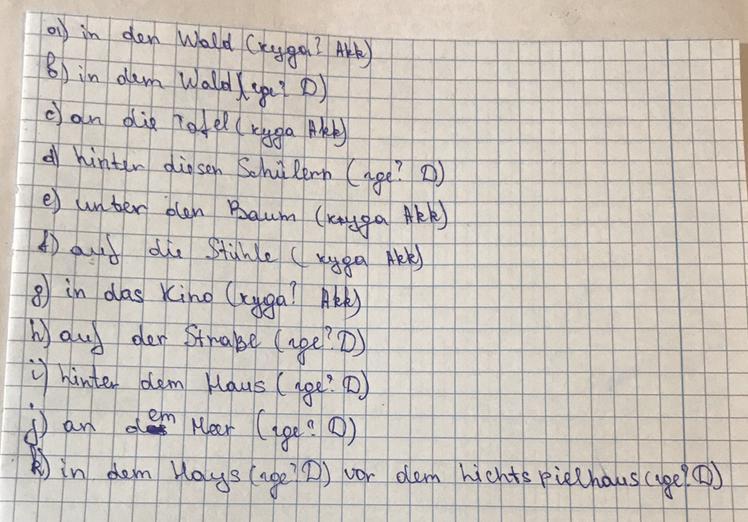 a) in den Wald (куда? Akk)
b) in dem Wald (где? D)
c) an die Tafel (куда Akk)
d) hinter diesen Schülern (где? D)
e) unter den Baum (куда Akk)
f) auf die Stühle (куда Akk)
g) in das Kino (куда? Akk)
h) auf der Straße (где? D)
i) hinter dem Haus (где? D)
j) an dem Meer (где? D)
k) in dem Hays (где? D) vor dem Lichtspielhaus (где? D)